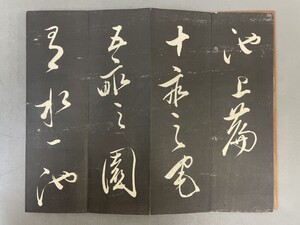 池上篇
十畝之宅
五畝之園
有水一池